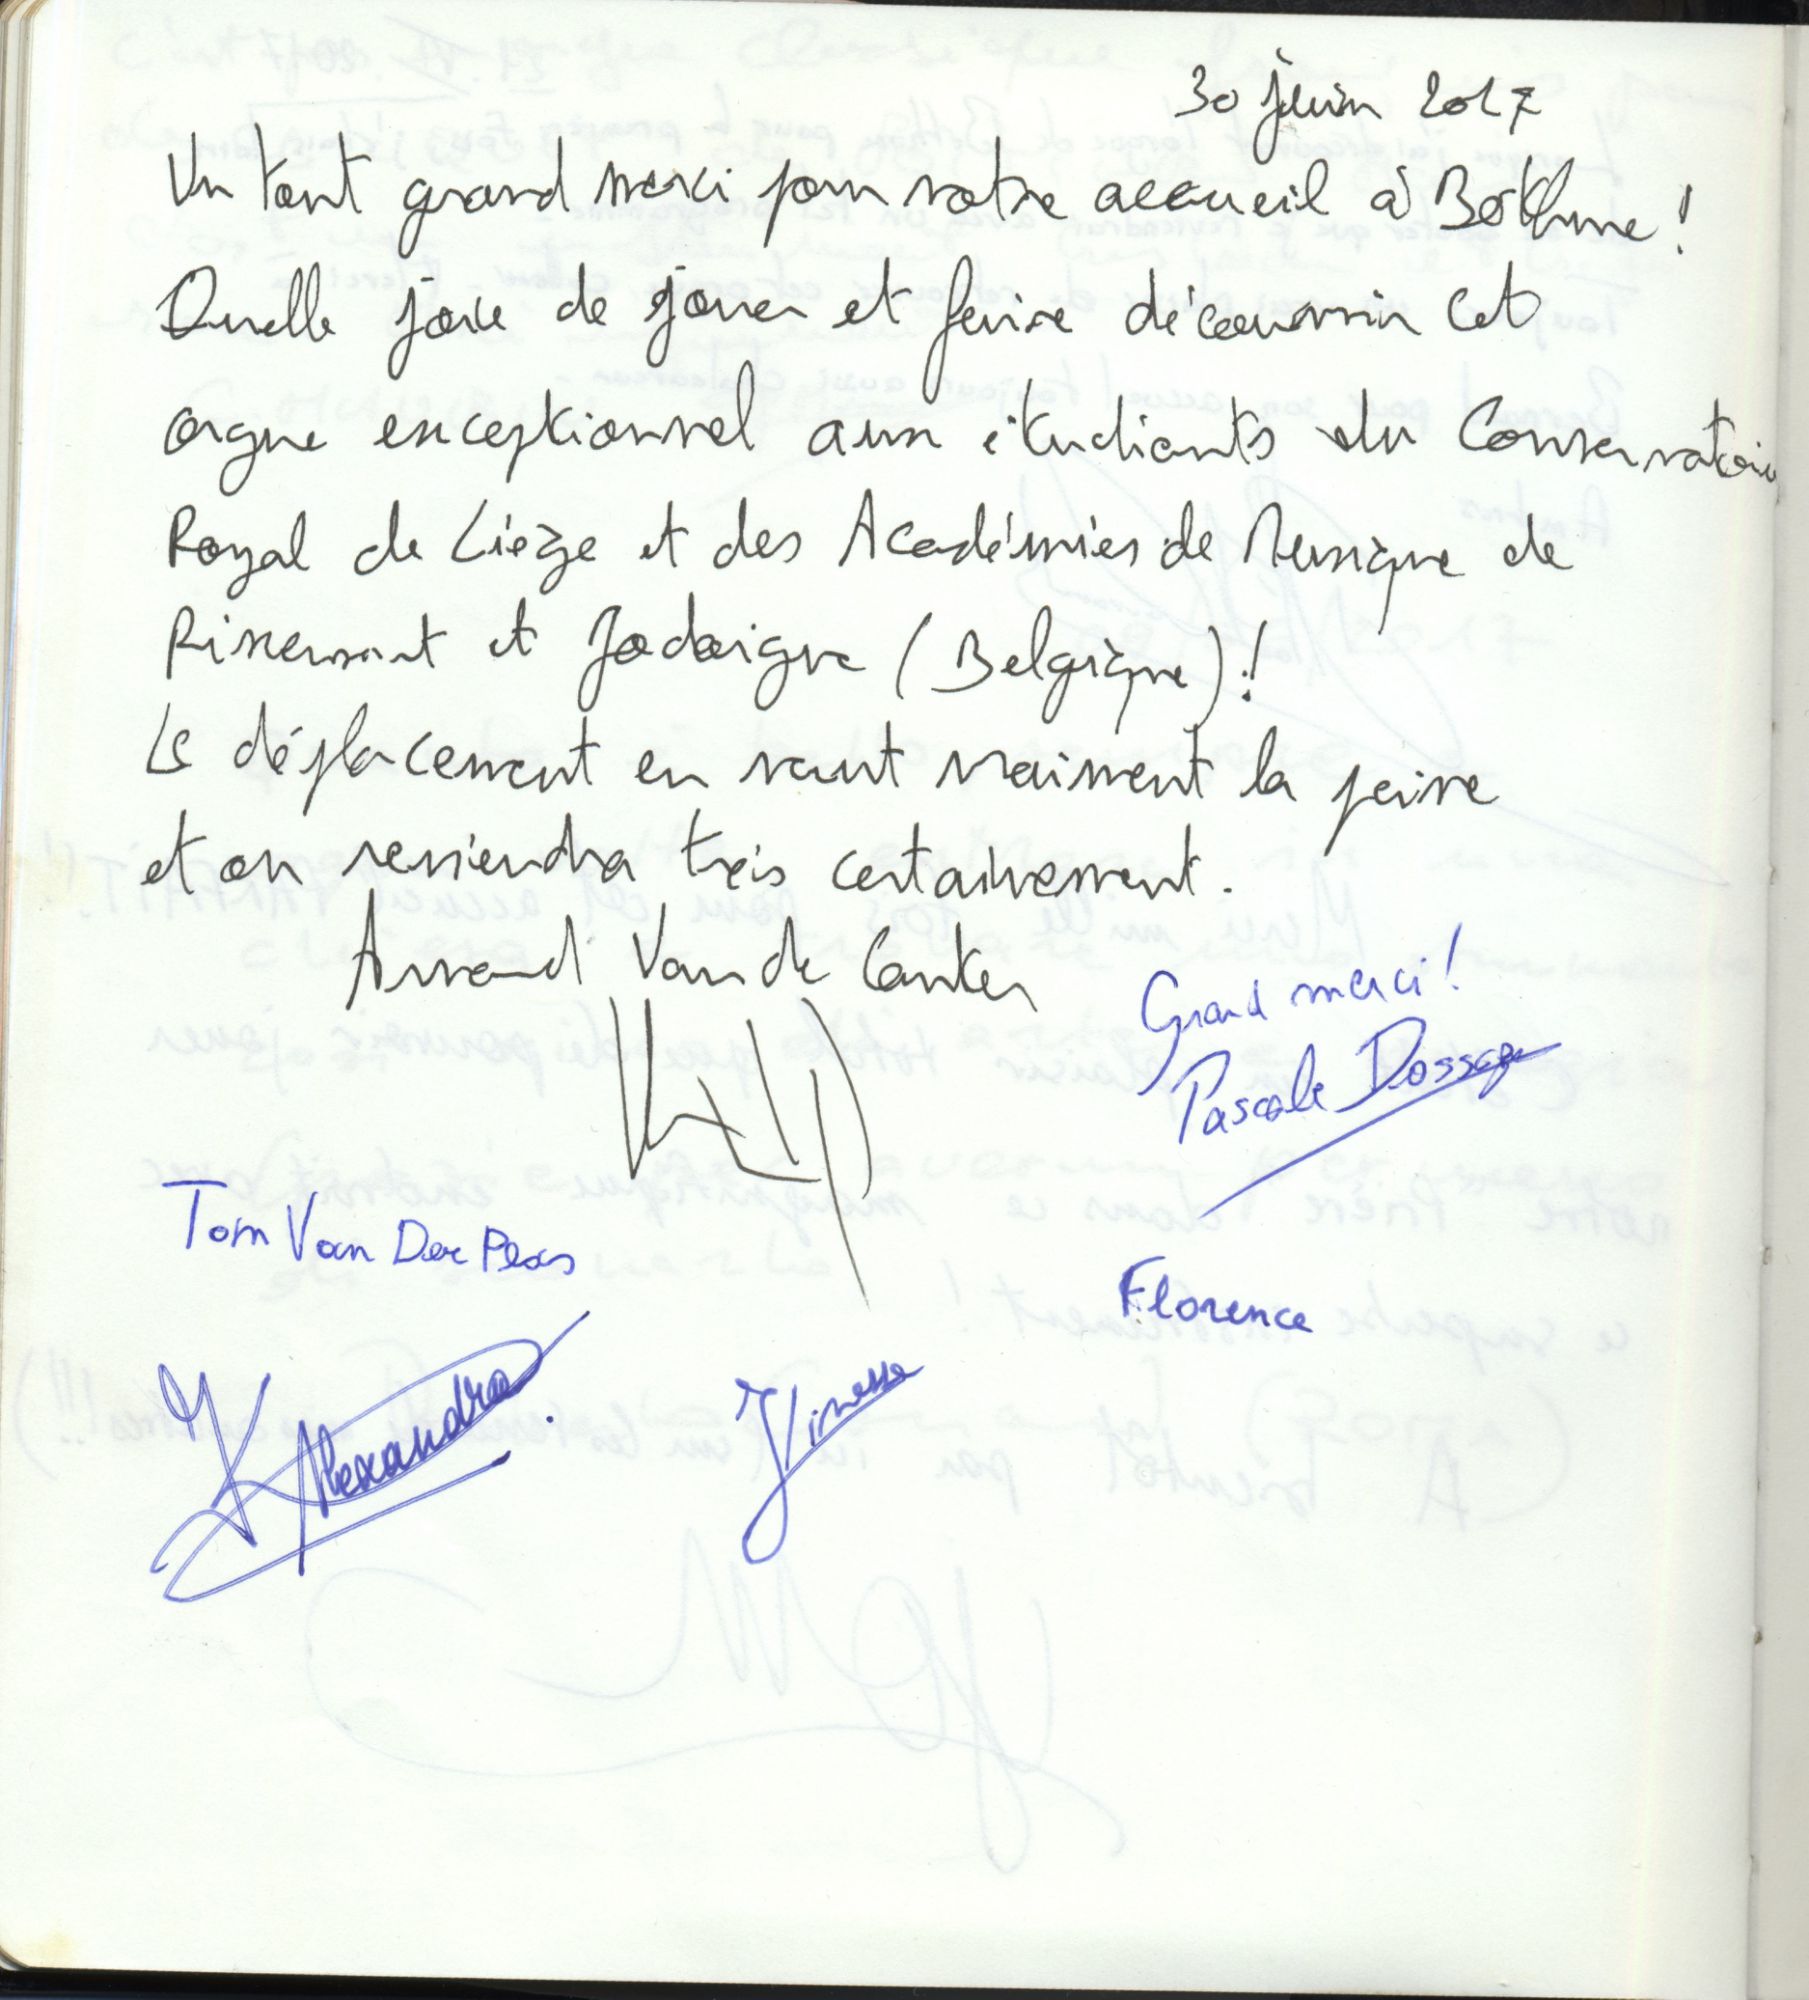 30 juin 2017
Un tout grand merci pour votre accueil à Béthune !
Quelle joie de jouer et faire découvrir cet
orgue exceptionnel aux étudiants du Conservatoire
Royal de Liège et des Académies de Musique de
Rixensart et Jodoigne (Belgique) !
Le déplacement en vaut vraiment la peine
et on reviendra très certainement.
Arnaud Van de Cauter
Grand merci !
Pascale Dossogne
Tom Van Der Plas
Florence
Alexandra